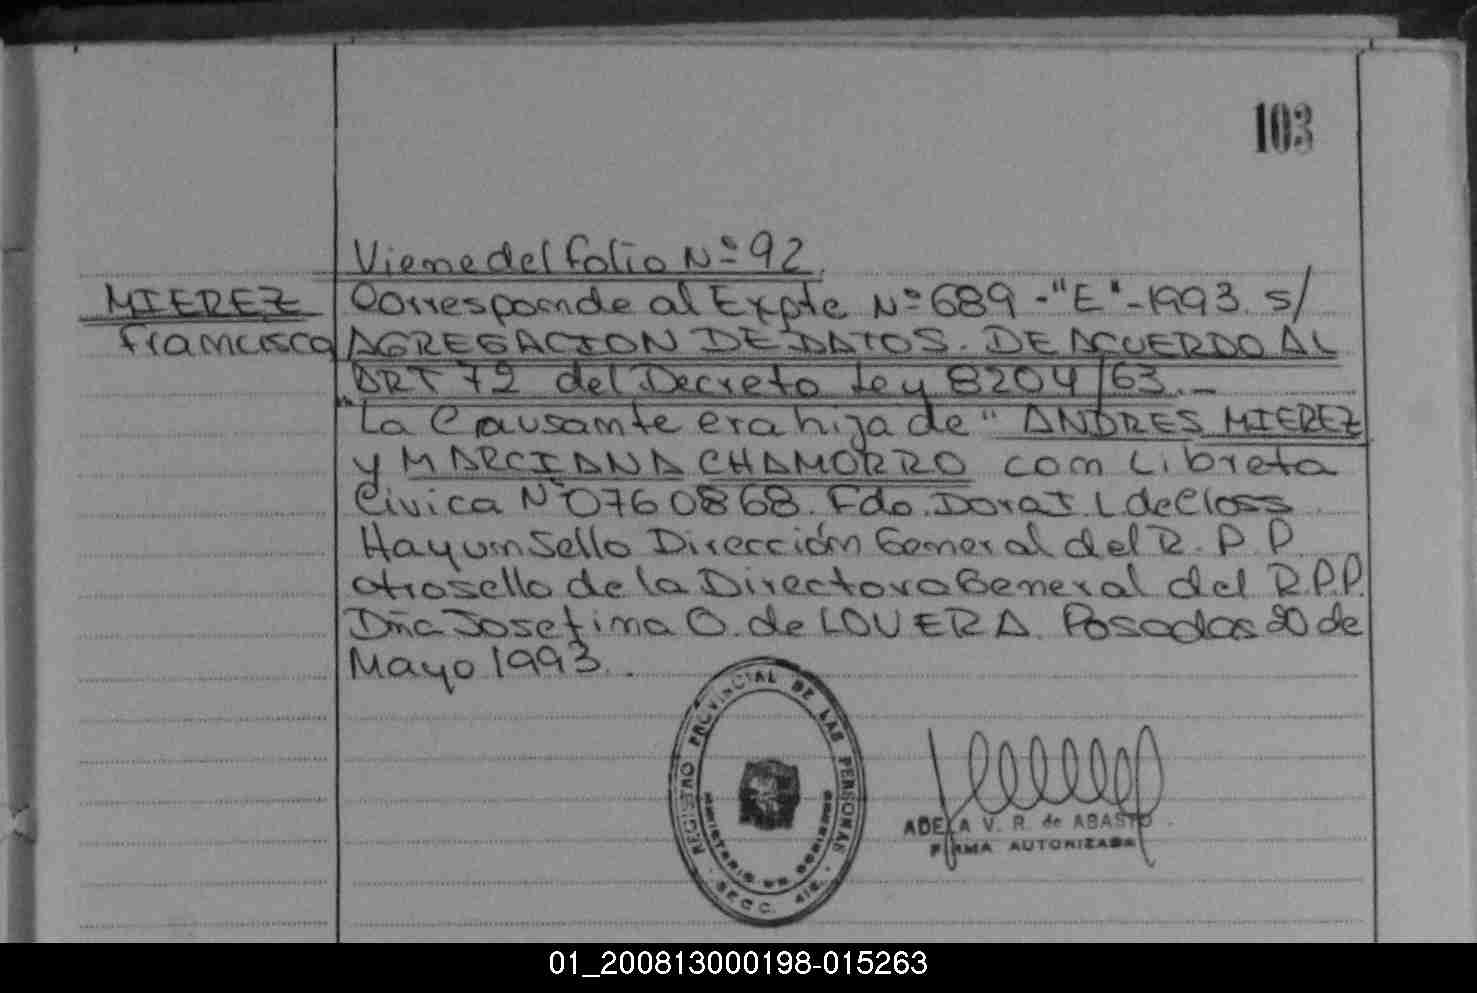 103
Viene del folio Nº 92
MIEREZ
Francisca
Corresponde al Expte Nº 689 -"E"- 1993. s/
AGREGACION DE DATOS. DE ACUERDO AL
ART 72 del Decreto Ley 8204/63._
"La Causante era hija de "ANDRES MIEREZ
y MARCIANA CHAMORRO con Libreta
Civica Nº 0760868. Fdo. Dora I. L de Closs
Hay un Sello Dirección General del R. P. P.
otro sello de la Directora General del R.P.P.
Dña Josefina O. de LOVERA. Posadas 20 de
Mayo 1993..
REGISTRO PROVINCIAL DE LAS PERSONAS
MINISTERIO DE GOBIERNO
SECC.
ADELA V. R. de ABASTO
FIRMA AUTORIZADA
01_200813000198-015263